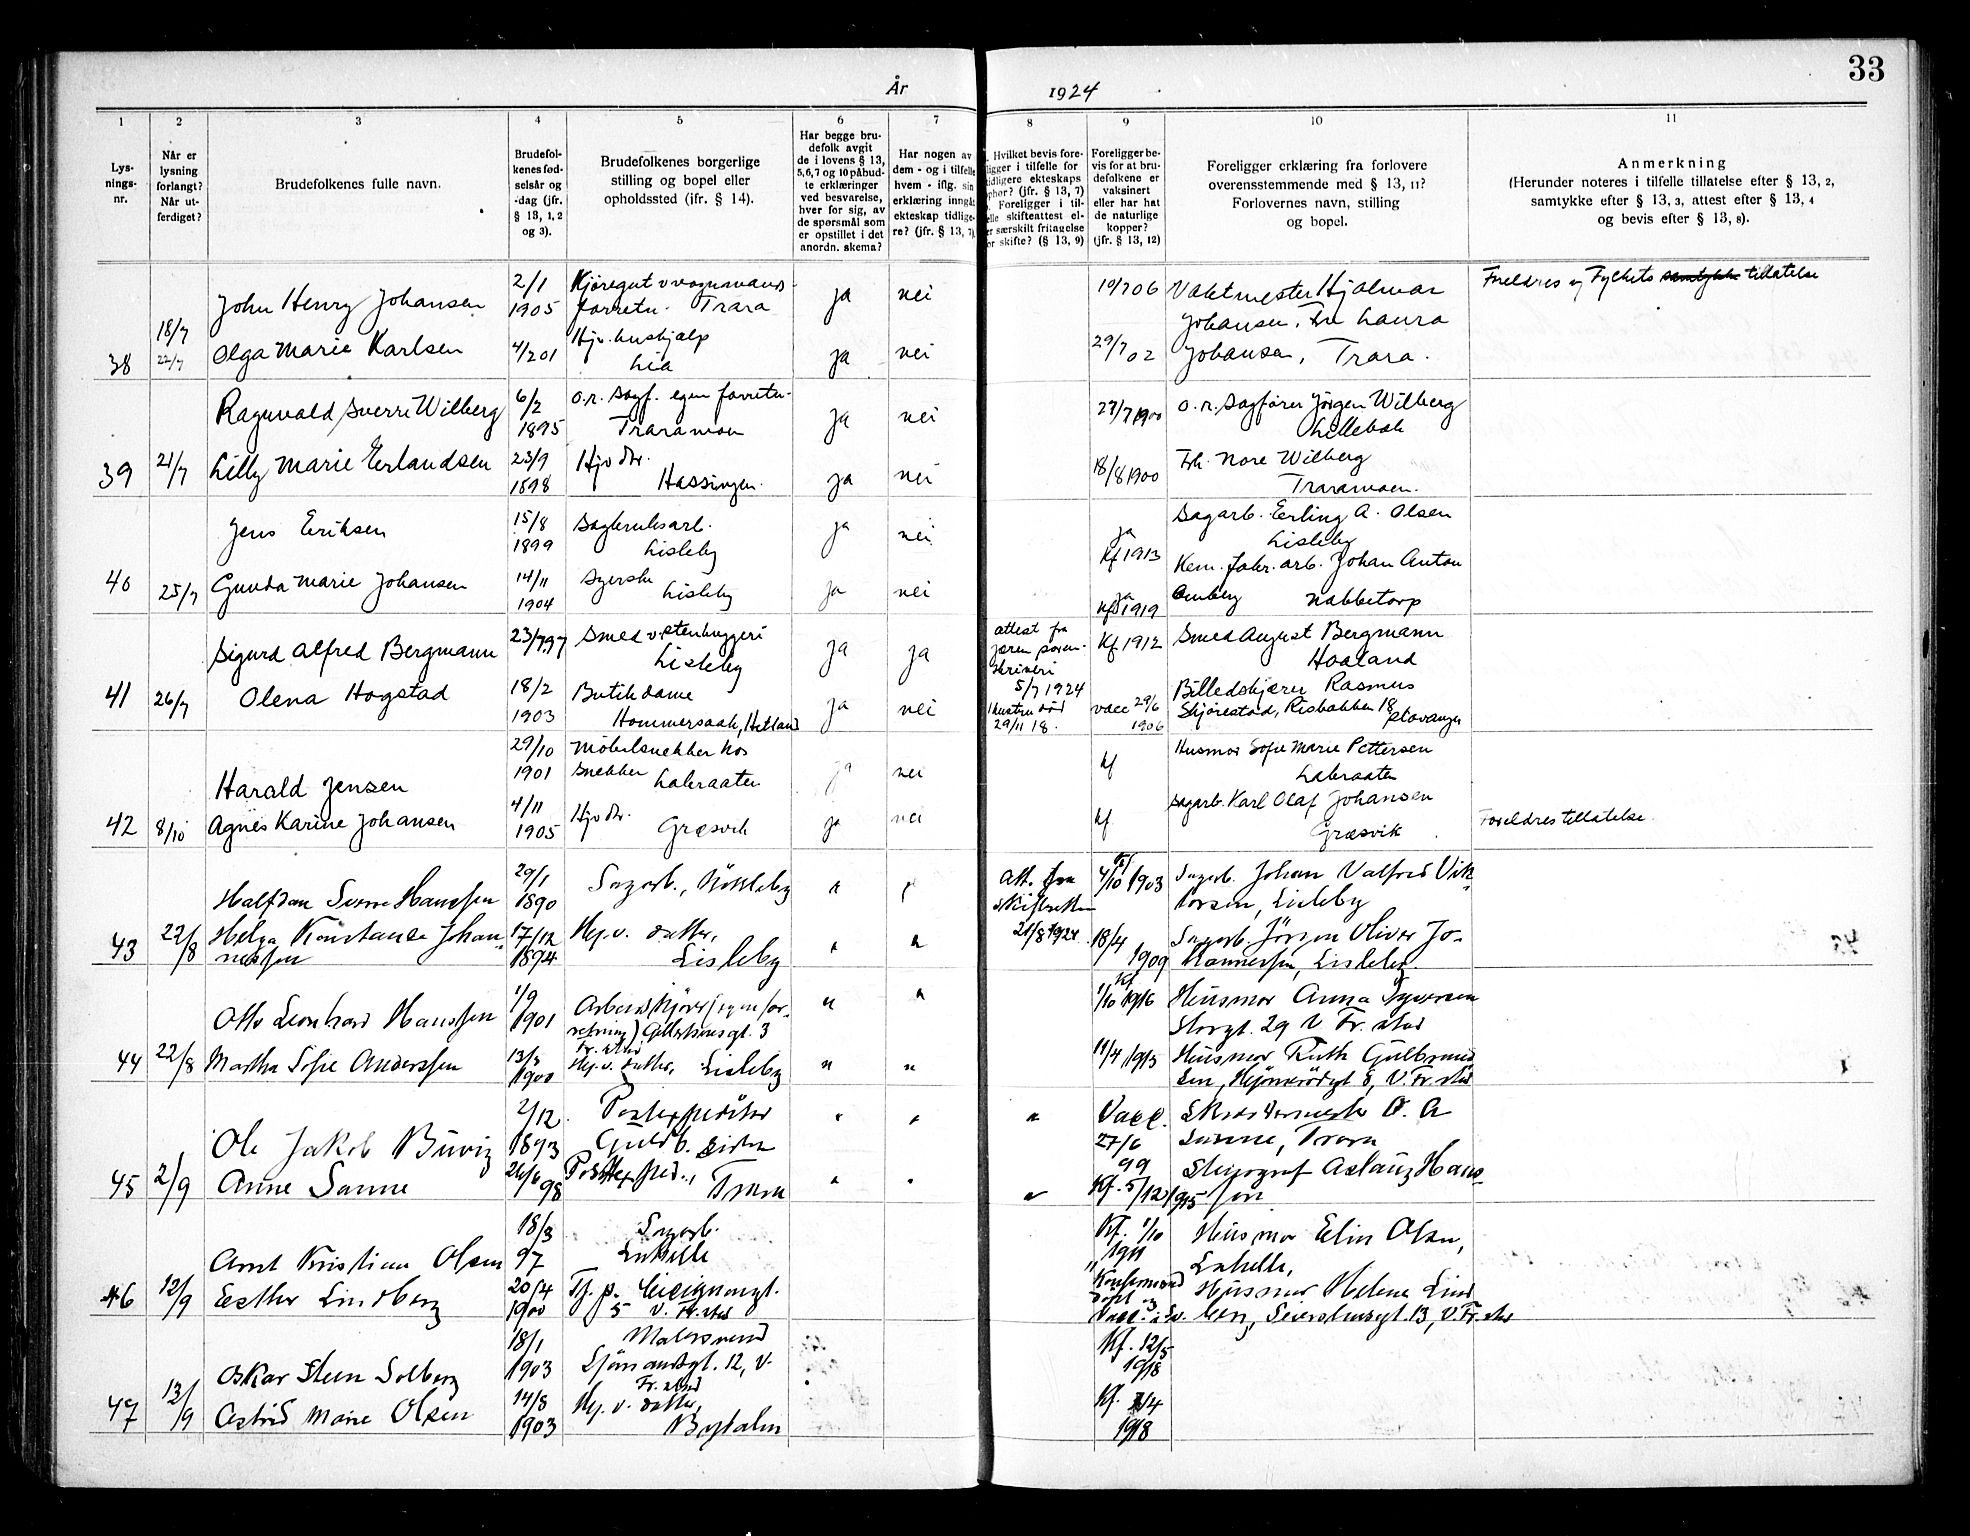 33
År 1924
1 2 3 4 5 6 7 8 9 10 11
Lys-
nings-
nr.
Når er
lysning
forlangt?
Når ut-
ferdiget?
Brudefolkenes fulle navn.
Brudefol-
kenes fød-
selsår og
-dag (jfr.
§ 13, 1, 2
og 3).
Brudefolkenes borgerlige
stilling og bopel eller
opholdssted (jfr. § 14).
Har begge bru-
defolk avgit
de i lovens § 13,
5, 6, 7 og 10 påbud-
te erklæringer
ved besvarelse,
hver for sig, av
de spørsmål som
er opstillet i det
anordn. skema?
Har nogen av
dem - og i tilfelle
hvem - iflg. sin
erklæring inngåt
ekteskap tidlige-
re? (jfr. § 13, 7)
Hvilket bevis fore-
ligger i tilfelle for
tidligere ekteskaps
ophør? (jfr. § 13, 7)
Foreligger i til-
felle skifteattest el-
er særskilt fritagelse
or skifte? (§ 13, 9)
Foreligger be-
vis for at bru-
defolkene er
vaksinert
eller har hat
de naturlige
kopper?
(jfr. § 13, 12)
Foreligger erklæring fra forlovere
overensstemmende med § 13, 11?
Forlovernes navn, stilling
og bopel.
Anmerkning
(Herunder noteres i tilfelle tillatelse efter § 13, 2,
samtykke efter § 13, 3, attest efter § 13, 4
og bevis efter § 13, 8).
38
18/7
22/7
John Henry Johansen
2/1
1905
Kjøregut v vognmands-
forretn. Trara
ja nei
19/7 06
Vaktmester Hjalmar
Johansen, Fru Laura
Johansen, Trara.
Foreldres og Fylkets samtykke tillatelse
Olga Marie Karlsen
4/2 01
Hjv. hushjælp
Lia
ja nei
29/7 02
39
21/7
Ragnvald Sverre Wilberg
6/2
1895
O.r. sagf. egen forretn.
Traramoen
ja nei
27/7 1900
O.r. sagfører Jørgen Wilberg
Lillebæk
Lilly Marie Erlandsen
23/9
1898
Hjv dtr.
Hassingen.
ja nei
18/8 1900
Frk. Nore Wilberg
Traramoen.
40
25/7
Jens Eriksen
15/8
1899
Sagbruksarb.
Lisleby
ja nei
ja
Kf 1913
Sagarb. Erling A. Olsen
Lisleby
Gunda Marie Johansen
14/11
1904
Syerske
Lisleby
ja nei
ja
Kf 1919
Kem. fabr. arb. Johan Anton
Omberg Nabbetorp
41
26/7
Sigurd Alfred Bergmann
23/7 97
Smed v stenhuggeri
Lisleby
ja ja
attest fra
Jæren soren-
skriveri
5/7 1924
hustru død
29/11 18.
Kf 1912
Smed August Bergmann
Haaland
Olena Hogstad
18/2
1903
Butikdame
Hommersaak, Hetland
ja nei
vacc 29/6
1906
Billedskjærer Rasmus
Skjørestad, Risbakken 18
Stavanger
42
8/10
Harald Jensen
29/10
1901
Møbelsnekker hos
snekker Labraaten
ja nei
Kf
Husmor Sofie Marie Pettersen
Labraaten
Agnes Karine Johansen
4/11
1905
Hjv dtr.
Græsvik
ja nei
Kf
Sagarb. Karl Olaf Johansen
Græsvik
Foreldres tillatelse.
43
22/8
Halfdan Sverre Hanssen
29/1
1890
Sagarb., Nøkleby
Att. fra
skifteretten
21/8 1924
Kf
4/10 1903
Sagarb. Johan Valfred Vik-
torsen, Lisleby
Helga Konstanse Johan-
nessen
17/12
1894
Hj. v. datter,
Lisleby
18/4
1909
Sagarb. Jörgen Oliver Jo-
hannessen, Lisleby.
44
22/8
Otto Leonhard Hanssen
1/9
1901
Arbeidskjører (egen for-
retning)
Fr.stad
Kf
1/10 1916
Husmor Anna Syversen
Storgt. 29 V Fr.stad
Martha Sofie Anderssen
13/3
1900
Hj. v. datter, Lisleby
11/4 1915
Husmor Ruth Gulbrand-
sen, V. Fr.stad
45
2/9
Ole Jakob Buvig
2/12
1893
Postexpeditör
Vacc.
27/6
99
O. A.
Sanne, Trara
Anne Sanne
26/6 98
Postexped., Trara
Kf. 5/12 1915
Stenograf Aslaug Hans-
sen
46
12/9
Arnt Kristian Olsen
18/3
97
Sagarb.
Lahelle
Kf. 1/10
1911
Husmor Elin Olsen,
Lahelle,
Esther Lindberg
20/4
1900
5 V. Fr.stad
Konfirmered
döpt og
Husmor Helene Lind-
berg, Seierstensgt. 13, V. Fr.stad
47
13/9
Oskar Steen Solberg
18/1
1903
Malersvend
12, V.
Fr.stad
Kf. 12/5
1918
Astrid Marie Olsen
14/8
1903
Hj. v. datter,
Bydalen
Kf. 14
1918